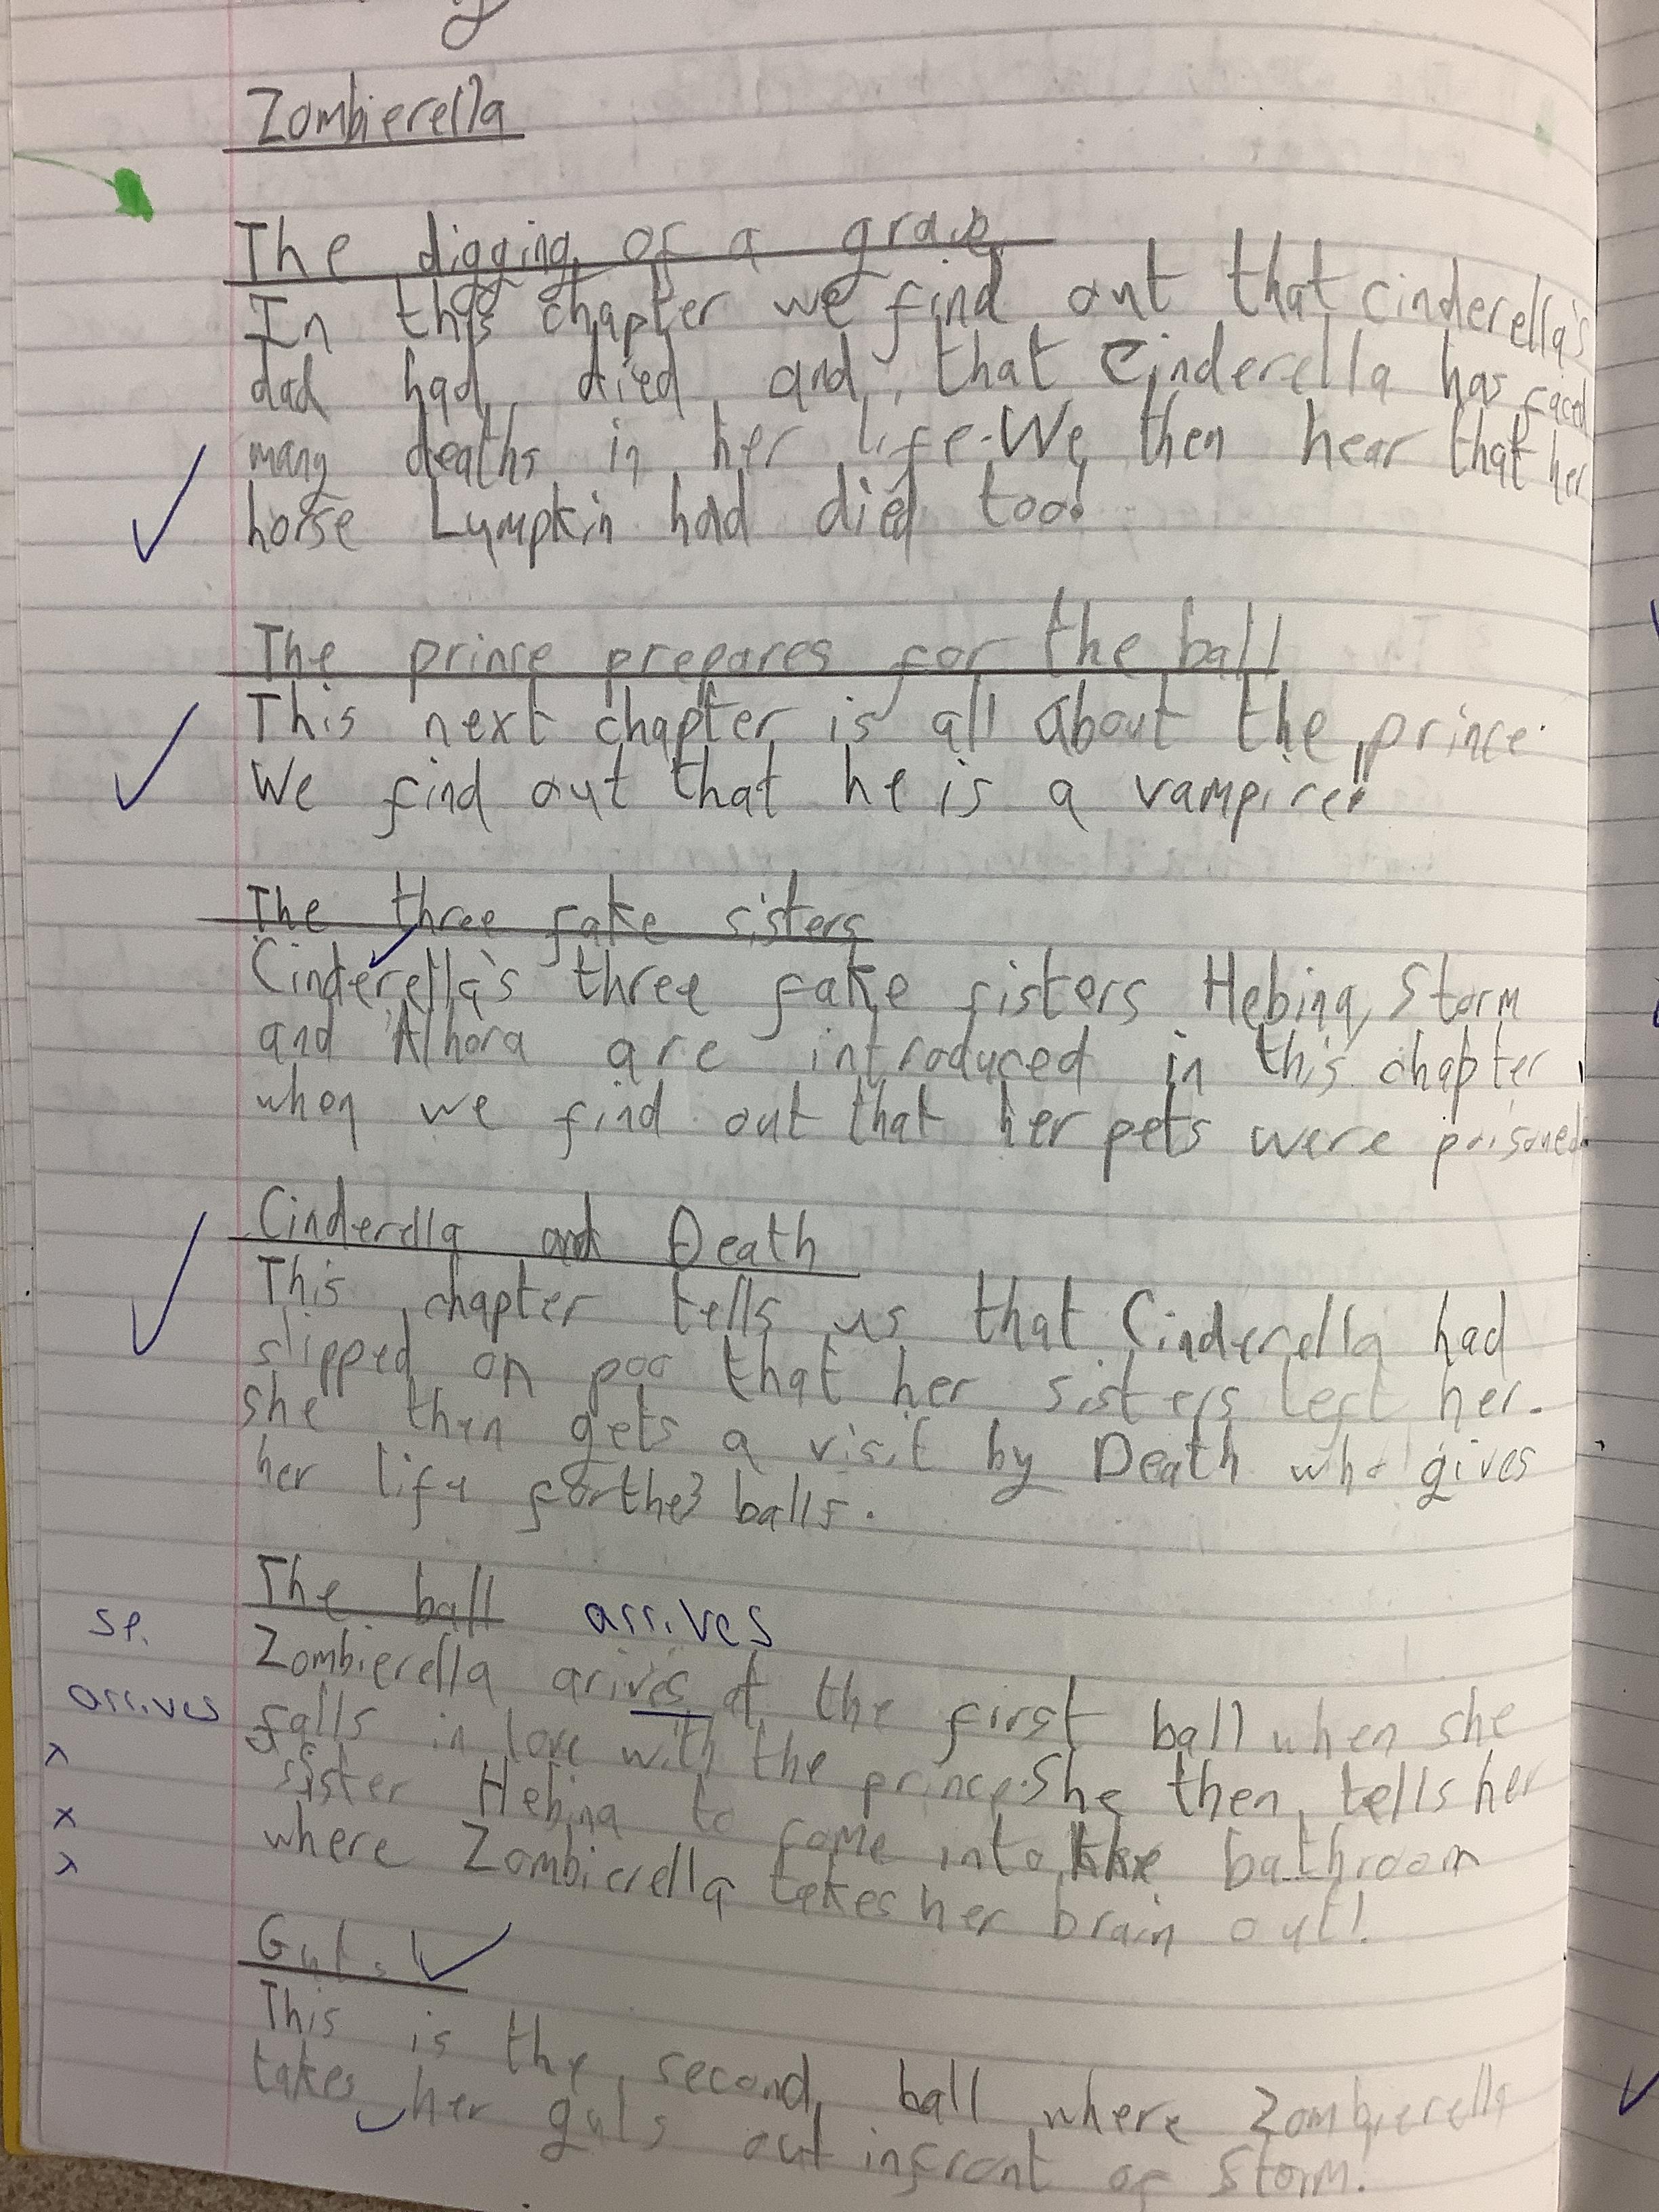 Zombierella
The digging of a grave
In this chapter we find out that cinderella's
dad had died and that Cinderella has faced
many deaths in her life. We then hear that her
horse Lumpkin had died too!
The prince prepares for the ball
This next chapter is all about the prince.
We find out that he is a vampire!
The three fake sisters
Cinderella's three fake sisters Hebina, Storm
and Alhora are introduced in this chapter
when we find out that her pets were poisoned.
Cinderella and Death
This chapter tells us that Cinderella had
slipped on poo that her sisters left her.
she then gets a visit by Death who gives
her life for the 3 balls.
The ball arrives
sp.
Zombierella arives at the first ball when she
arrives
falls in love with the prince. She then tells her
sister Hebina to come into the bathroom
where Zombierella takes her brain out!
Guts!
This is the second ball where Zombierella
takes her guts out infront of Storm!